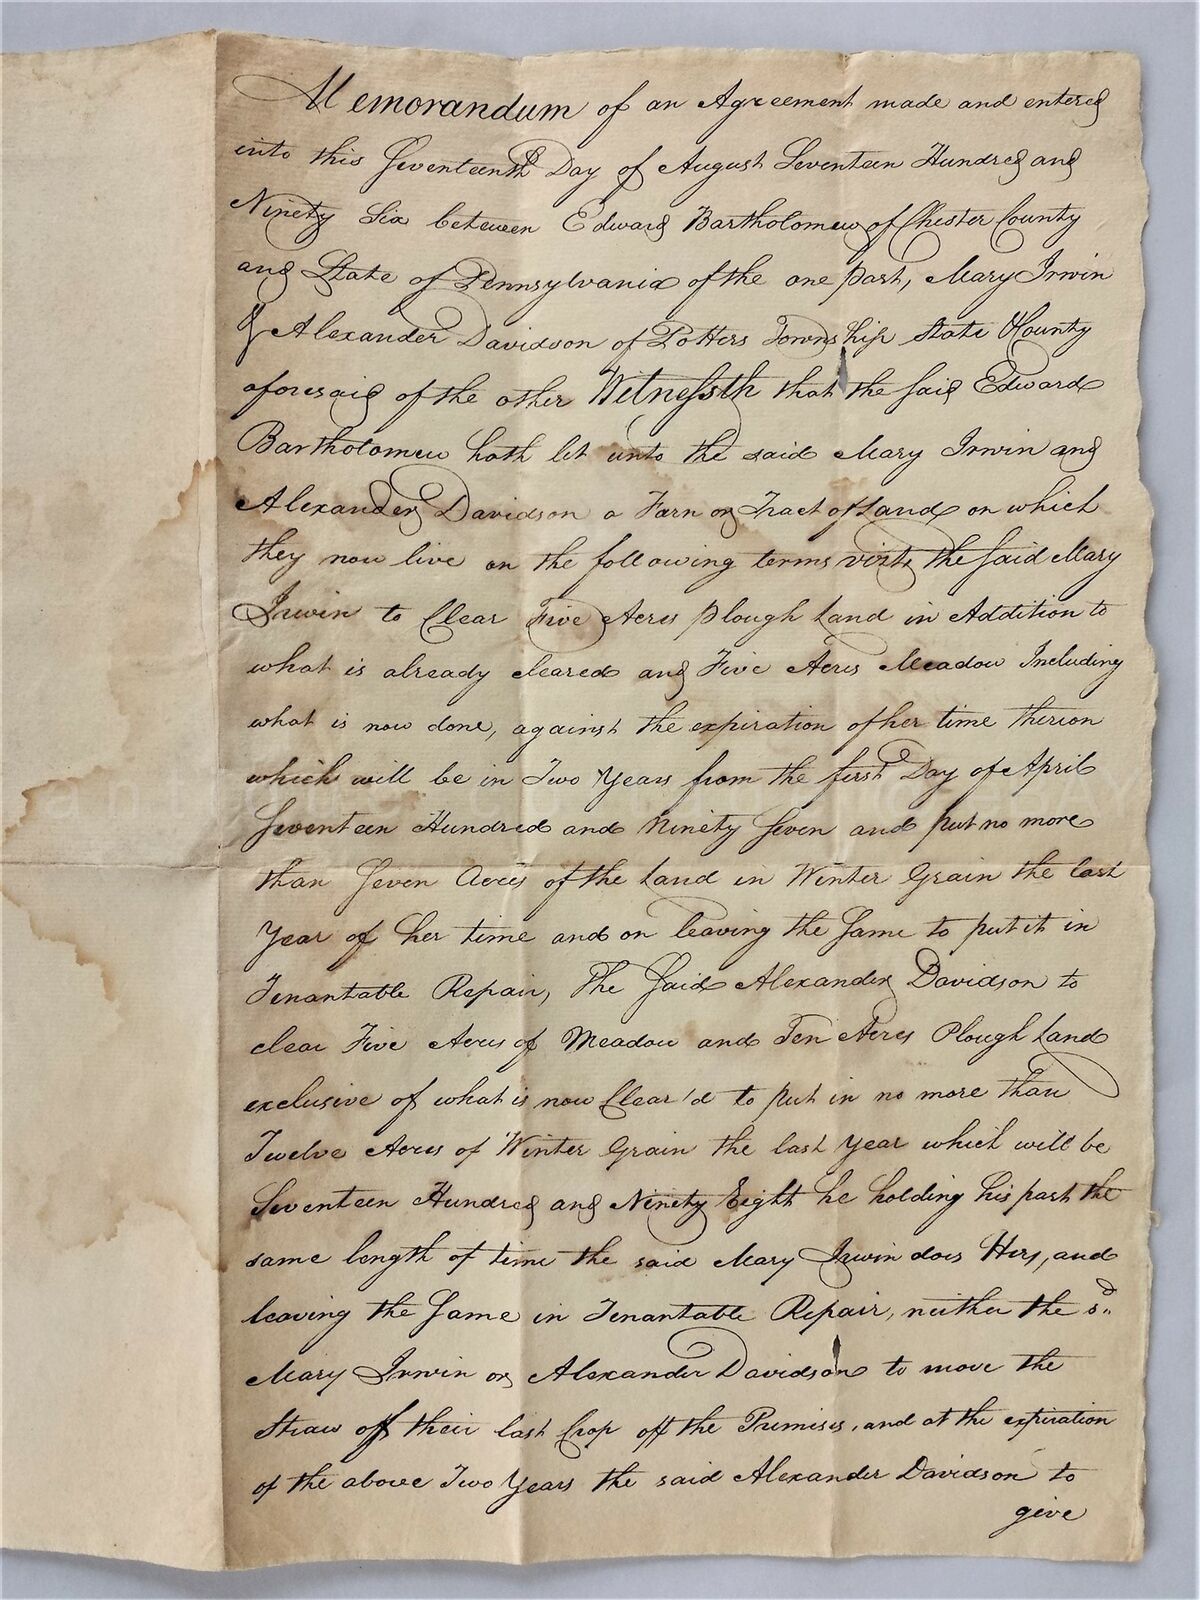 Memorandum of an Agreement made and entered
into this Seventeenth Day of August Seventeen Hundred and
Ninety Six between Edward Bartholomew of Chester County
and State of Pennsylvania of the one part, Mary Irwin
& Alexander Davidson of Potters Township State & County
aforesaid of the other Witnesseth that the said Edward
Bartholomew hath let unto the said Mary Irwin and
Alexander Davidson a Farn or Tract of Land on which
they now live on the following terms vizt, the said Mary
Irwin to Clear Five Acres plough Land in Addition to
what is already cleared and Five Acres Meadow Including
what is now done, against the expiration of her time thereon
which will be in Two Years from the first Day of April
Seventeen Hundred and Ninety Seven and put no more
than Seven Acres of the Land in Winter Grain the last
Year of her time and on leaving the Same to put it in
Tenantable Repair, The Said Alexander Davidson to
clear Five Acres of Meadow and Ten Acres Plough Land
exclusive of what is now Clear'd to put in no more than
Twelve Acres of Winter Grain the last Year which will be
Seventeen Hundred and Ninety Eight he holding his part the
same length of time the said Mary Irwin does Hers, and
leaving the Same in Tenantable Repair, neither the sd
Mary Irwin or Alexander Davidson to move the
Straw off their last Crop off the Premises, and at the expiration
of the above Two Years the said Alexander Davidson to
give